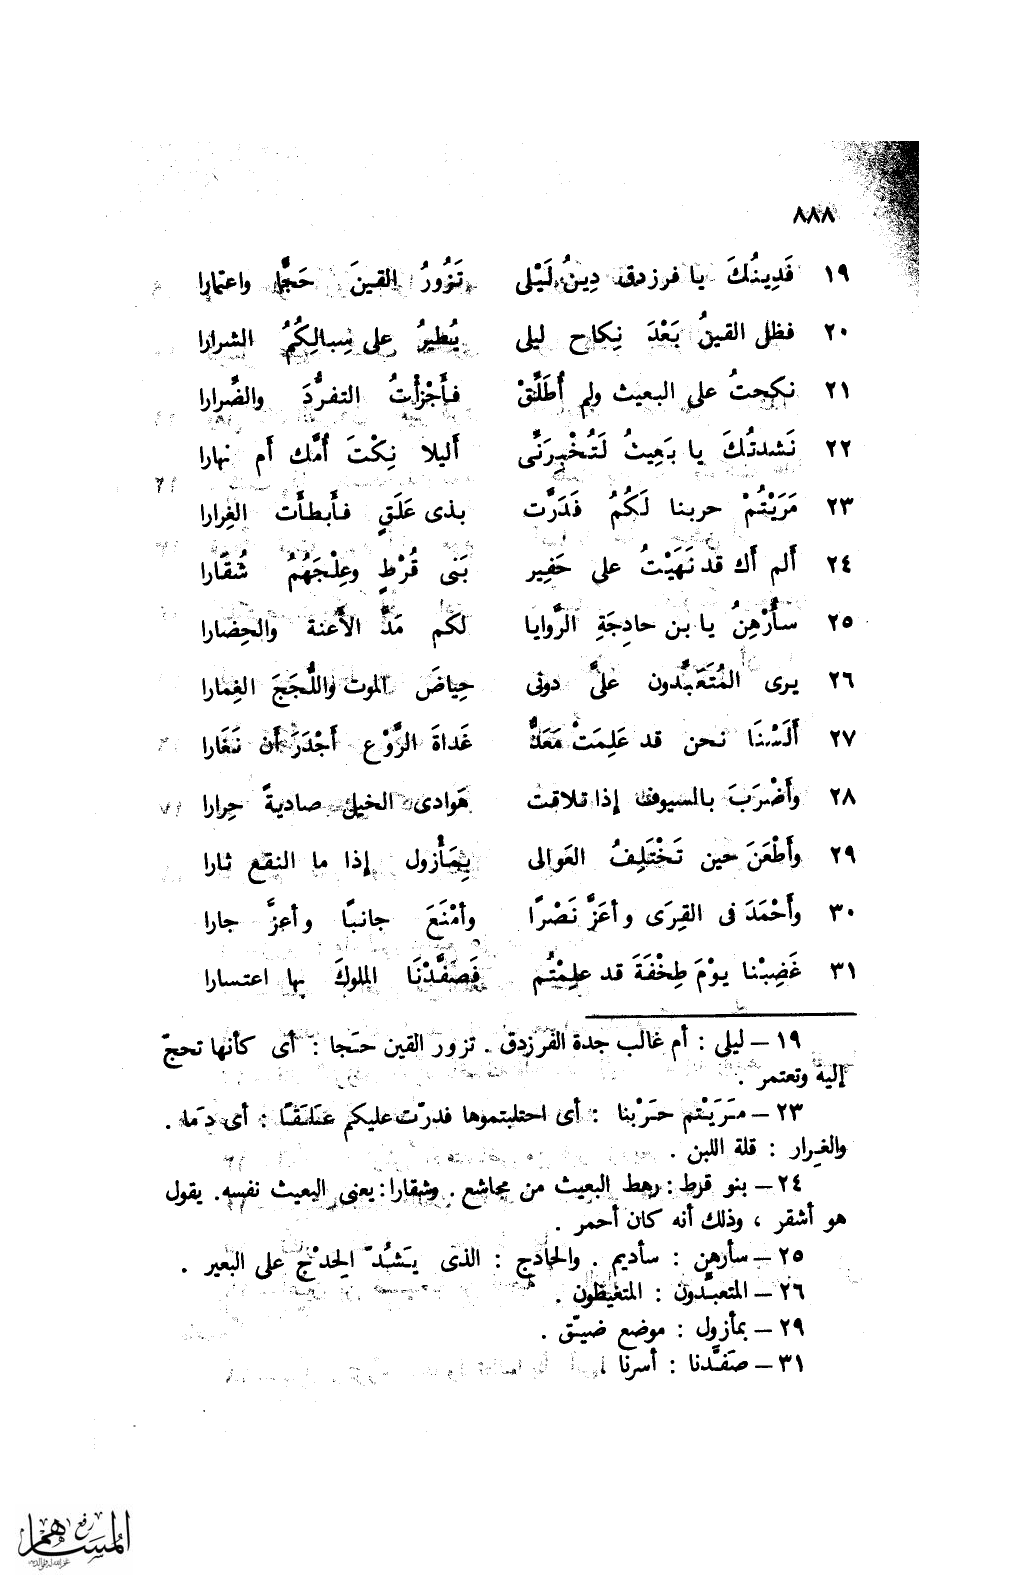 ٨٨٨
١٩ فَدِينُكَ يا فرزدق دِينُ لَيْلى تَزُورُ القينَ حَجًّا واعتمارا
٢٠ فظل القينُ بَعْدَ نِكاح ليلى يُطيرُ على سِبالِكُمُ الشرارا
٢١ نكحتُ على البعيث ولم أُطَلِّقْ فأَجْزأْتُ التفرُّدَ والضِّرارا
٢٢ نَشدتُكَ يا بَعِيثُ لَتُخْبِرَنِّى أَليلا نِكْتَ أُمَّك أم نهارا
٢٣ مَرَيْتُمْ حربنا لَكُمُ فَدَرَّت بذى عَلَقٍ فأَبطأَت الغِرارا
٢٤ أَلم أَك قد نَهَيْتُ على حَفِير بَنى قُرْطٍ وعِلْجَهُمُ شُقَارا
٢٥ سأُرْهِنُ يا بن حادِجَةِ الرَّوايا لكم مَدَّ الأَعنة والحِضارا
٢٦ يرى المُتَعَبِّدون علىَّ دونى حِياضَ الموت واللُّجَجَ الغِمارا
٢٧ أَلَسْنَا نحن قد عَلِمَتْ مَعَدٌّ غَداةَ الرَّوْع أَجْدَرَ أَن نَغَارا
٢٨ وأَضْرَبَ بالسيوف إذا تلاقت هَوادى الخيل صاديةً حِرارا
٢٩ وأَطْعَنَ حين تَخْتَلِفُ العَوالى بِمَأْزول إذا ما النقع ثارا
٣٠ وأَحْمَدَ فى القِرَى وأعَزَّ نَصْرًا وأمْنَعَ جانبًا وأعزَّ جارا
٣١ غَضِبْنا يوْمَ طِخْفَةَ قد علِمْتُم فَصفَّدْنَا الملوكَ بها اعتسارا
١٩ – ليلى : أم غالب جدة الفرزدق . تزور القين حَجا : أى كأنها تحجّ
إليه وتعتمر .
٢٣ – مَرَيْتم حَرْبنا : أى احتلبتموها فدرّت عليكم عَلَقًا : أى دَما .
والغِرار : قلة اللبن .
٢٤ – بنو قرط : رهط البعيث من مجاشع . وشقارا : يعنى البعيث نفسه . يقول
هو أشقر ، وذلك أنه كان أحمر .
٢٥ – سأرهن : سأديم . والحادج : الذى يَشُدّ الحدْج على البعير .
٢٦ – المتعبِّدون : المتغيظون .
٢٩ – بمأزول : موضع ضيّق .
٣١ – صَفَّدنا : أسرنا .
رفع
المساهم